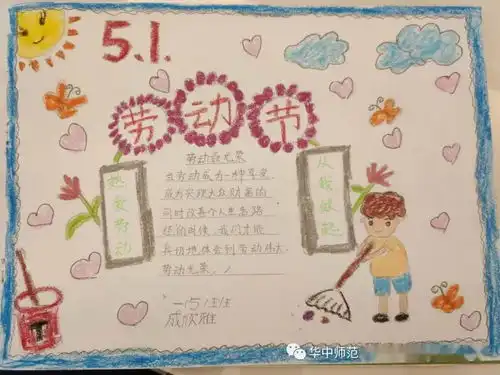 5.1.
劳动节
热爱劳动
从我做起
劳动最光荣
当劳动成为一种享受,
成为实现大众财富的
同时改善个人生活路
径的时候,我们才能
真切地体会到劳动伟大、
劳动光荣。
一(5)班
成欣雅
华中师范